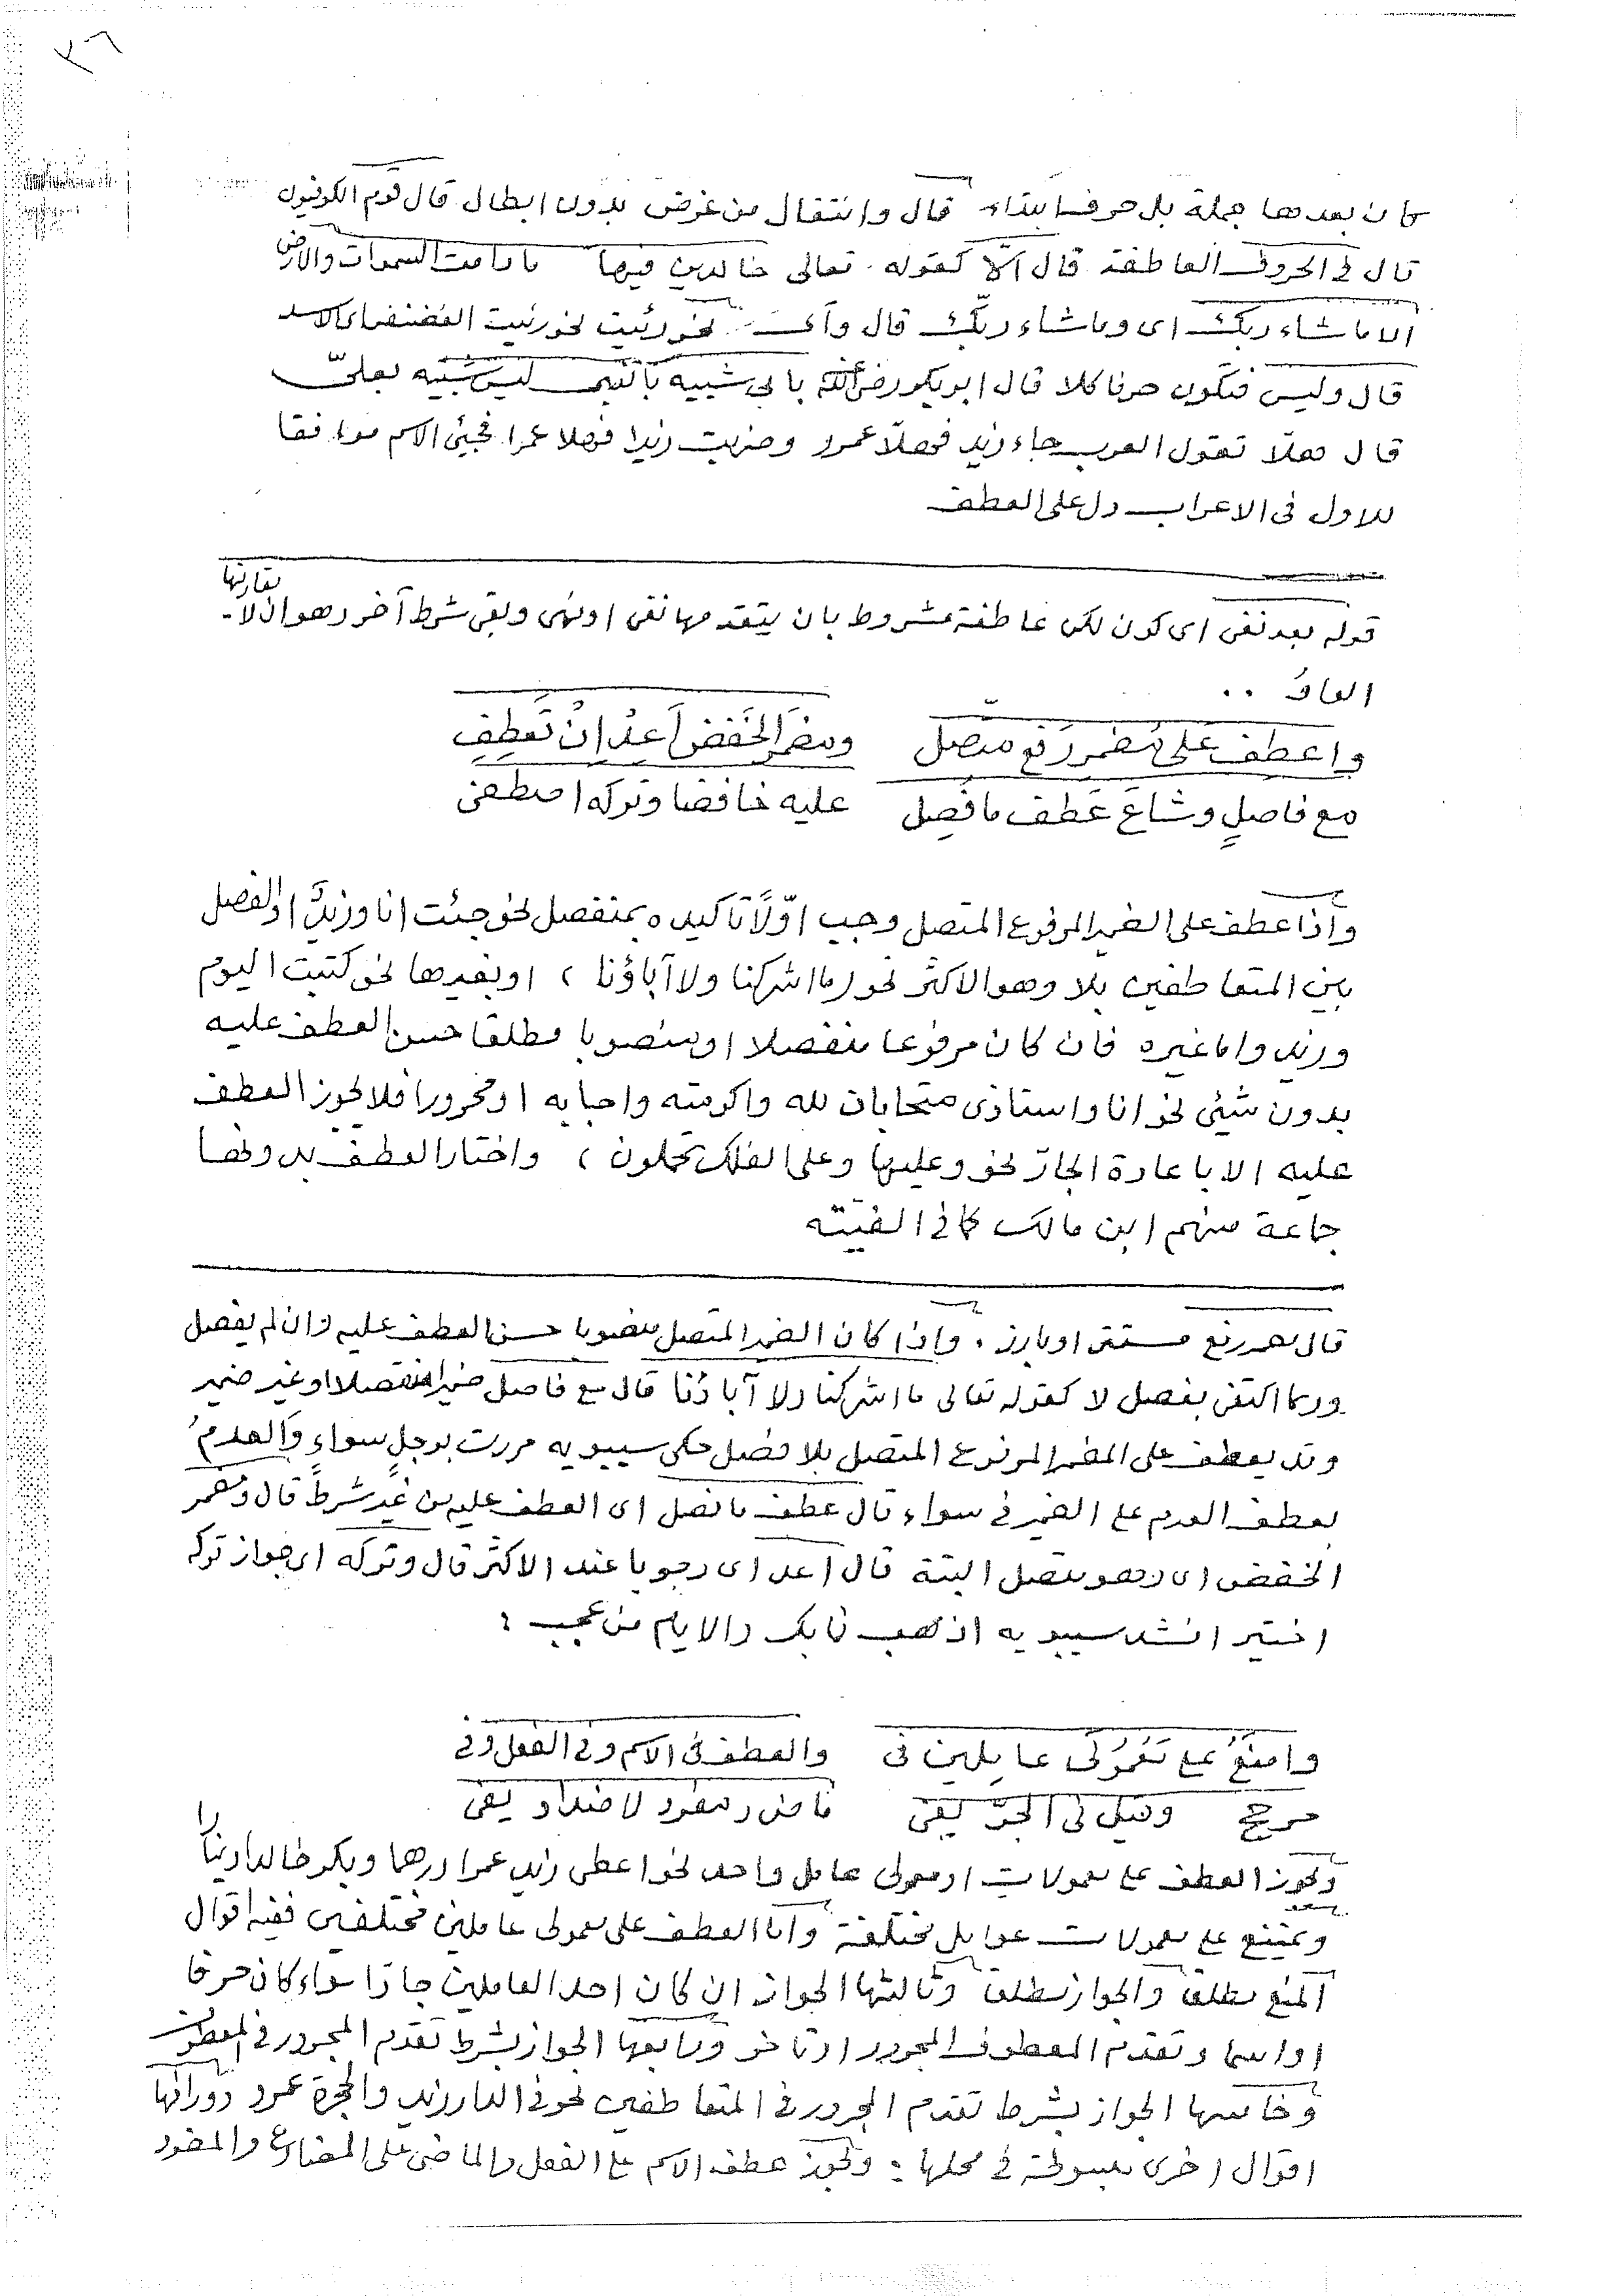 ٣٦
كان بعدها جملة بل حرف ابتداء قال وانتقال من غرض بدون ابطال قال قوم الكوفيون
قال في الحروف العاطفة قال الّا كقوله تعالى خالدين فيها ما دامت السموات والارض
الا ما شاء ربك اى وما شاء ربّك قال وأى نحو رئيت نحو رئيت الغضنفر اى الاسد
قال وليس فتكون حرفا كلا قال ابو بكر رضى الله بابي شبيه بالنبى ليس شبيه بعلىّ
قال هلّا تقول العرب جاء زيد فهلّا عمرو وضربت زيدا فهلا عمرا فجيئ الاسم موافقا
للاول فى الاعراب دل على العطف
قوله بعد نفى اى كون لكن عاطفة مشروط بان يتقدمها نفى او نهى وبقى شرط آخر وهو ان لا يقارنها
الواو
واعطف على مضمر رفع متصل ومضمر الخفض اَعِدْ اِنْ تعطِفِ
مع فاصلٍ وشاعَ عَطف ما فُصِل عليه خافضا وتركه اصطفى
واذا عطف على الضمير المرفوع المتصل وجب اوّلًا تاكيده بمنفصل نحو جئت انا وزيدٌ او الفصل
بين المتعاطفين بلا وهو الاكثر نحو (ما اشركنا ولا آباؤنا) او بغيرها نحو كتبت اليوم
وزيد واما غيره فان كان مرفوعا منفصلا او منصوبا مطلقا حسن العطف عليه
بدون شيئ نحو انا واستاذى متحابان لله واكرمته واحبابه او مجرورا فلا يجوز العطف
عليه الا باعادة الجارّ نحو وعليها وعلى الفلك تحملون) واختار العطف بدونها
جماعة منهم ابن مالك كما في الفيّته
قال مضمر رفع مستتر او بارز. واذا كان الضمير المتصل منصوبا حسن العطف عليه وان لم يفصل
وربما اكتفى بفصل لا كقوله تعالى ما اشركنا ولا آباؤنا قال مع فاصل ضميرا منفصلا او غير ضمير
وقد يعطف على المضمر المرفوع المتصل بلا فصل حكى سيبويه مررت برجلٍ سواءٍ والعدمُ
بعطف العدم على الضمير في سواء قال عطف ما فصل اى العطف عليه من غير شرط قال ومضمر
الخفض اى وهو متصل البتة قال اعد اى وجوبا عند الاكثر قال وتركه اى جواز تركه
اختير انشد سيبويه اذهب فما بك والايام من عجب :
وامنَعْ على مَعْمُولَى عاملين في والعطف في الاسم وفي الفعل وفي
مرجح وقيل في الجرّ يفى ماض ومفرد لا ضدا و يفى
ويجوز العطف على معمولات او معمولى عامل واحد نحو اعطى زيد عمرا درهما وبكر خالدا دينارا
ويمتنع على معمولات عوامل مختلفة واما العطف على معمولى عاملين مختلفين ففيه اقوال
المنع مطلقا والجواز مطلقا وثالثها الجواز ان كان احد العاملين جارّا سواء كان حرفا
او اسما وتقدم المعطوف المجرور او تاخر ورابعها الجواز بشرط تقدم المجرور في المعطوف
وخامسها الجواز بشرط تقدم المجرور في المتعاطفين نحو في الدار زيد والحجرة عمرو ووراءها
اقوال اخرى مبسوطة في محلها : ويجوز عطف الاسم على الفعل والماضى على المضارع والمفرد